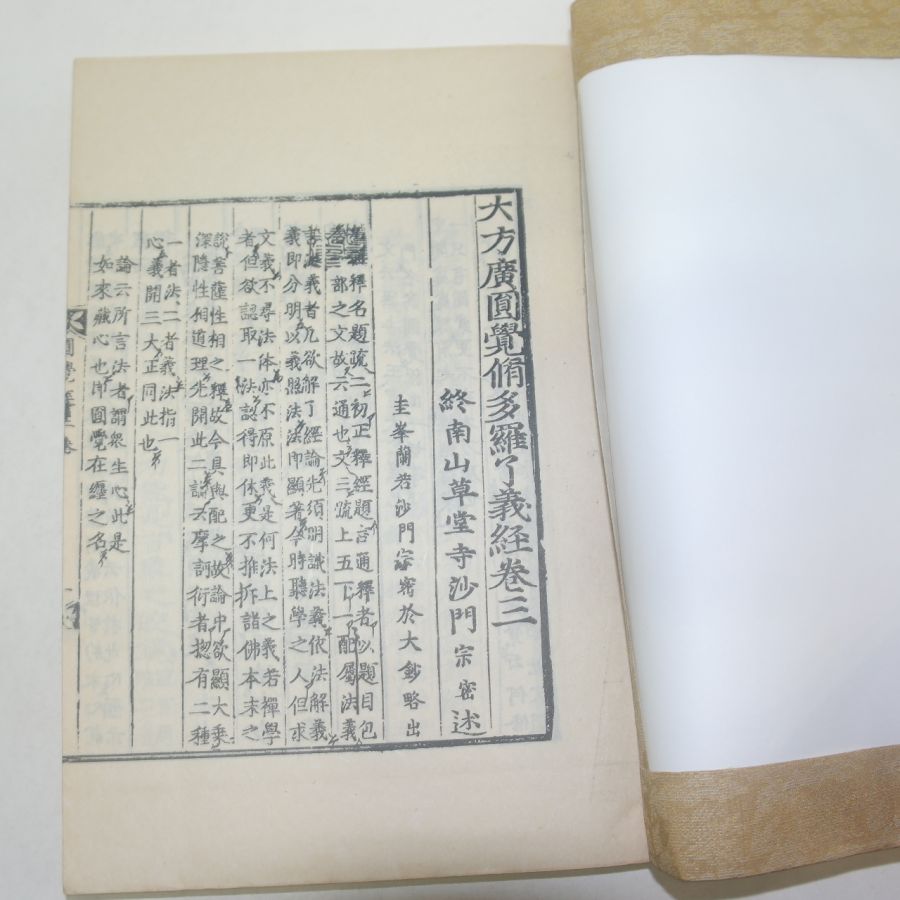 大方廣圓覺脩多羅了義經卷三
終南山草堂寺沙門宗密述
圭峯蘭若沙門宗密於大鈔略出
釋名題疏二初正釋經題言通釋者以題目包
部之文故六通也文三疏上五下一配屬法義
義者凡欲解了經論先須明識法義依法解義
義即分明以義照法法即顯著今時聽學之人但求
文義不尋法体亦不原此義是何法上之義若禪學
者但欲認取一法認得即休更不推拆諸佛本末之
說菩薩性相之釋故今具與配之故論中欲顯大乘
深隱性相道理先開此二論云摩訶衍者揔有二種
一者法二者義法指一
心義開三大正同此也
論云所言法者謂衆生心此是
如來藏心也即圓覺在纏之名
圓覺卷